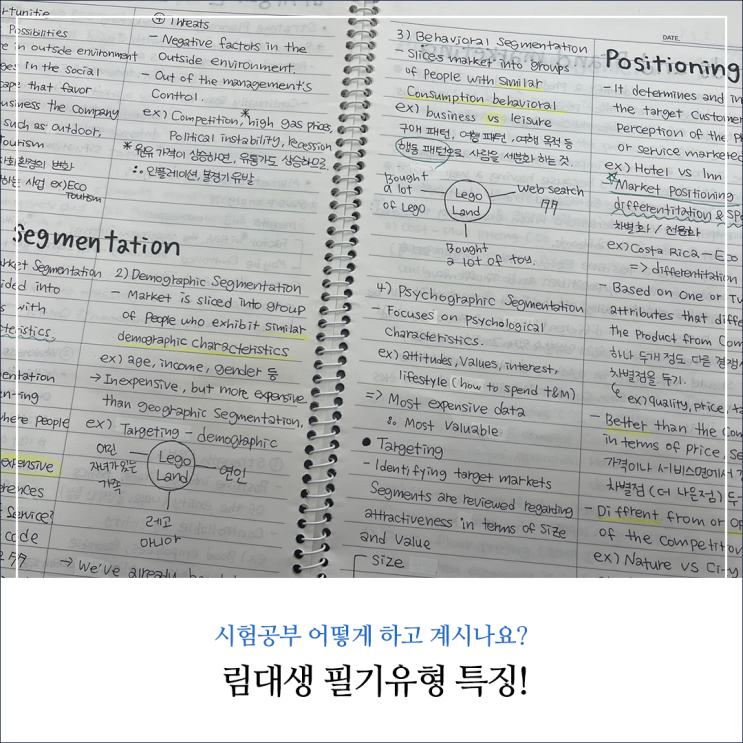 rtunitie
Possibilities
e in outside environment
ges In the Social
cape that favor
usiness the Company
such as outdoor,
tourism
사회환경의 변화
하는 사업 ex) Eco
tourism
⊕ Threats
- Negative factors in the
Outside environment.
- Out of the management's
Control.
ex) Competition, high gas prices,
Political instability, recession
* 원유 가격이 상승하면, 유통가도 상승하므로.
∴ 인플레이션, 불경기 유발
Segmentation
rket Segmentation
ided into
s with
cteristics.
entation
n-ing
where people
expensive
rences
Service?
code
2) Demographic Segmentation
- Market is sliced into group
of People who exhibit similar
demographic characteristics
ex) age, income, gender 등
→ Inexpensive, but more expensive
than geographic Segmentation.
ex) Targeting - demographic
어린
자녀가있는
가족
Lego
Land
연인
레고
마니아
→ We've already
3) Behavioral Segmentation
- Slices market into Groups
of People with Similar
Consumption behavioral
ex) business vs leisure
구매 패턴, 여행 패턴, 여행 목적 등
행동 패턴으로 사람을 세분화 하는 것.
Bought
a lot
of Lego
Lego
Land
web search
기록
Bought
a lot of toy.
4) Psychographic Segmentation
- Focuses on Psychological
Characteristics.
ex) attitudes, Values, interest,
lifestyle (how to spend t&m)
=> Most expensive data
∴ Most Valuable
● Targeting
- Identifying target markets
Segments are reviewed regarding
attractiveness in terms of Size
and Value
Size
DATE.
Positioning
- It determines and in
the target Customer
Perception of the P
or Service marketed
ex) Hotel vs Inn
- Market Positioning
differentitation & Spe
차별화 / 전문화
ex) Costa Rica - Eco
=> differentitation
- Based on One or Tw
attributes that diffe
the Product from Com
하나 두개 정도 다른 경쟁사
차별점을 두기.
ex) quality, Price,
- Better than the Com
in terms of Price, Se
가격이나 서비스면에서
차별점 (더 나은점) 두
- Diffrent from or Op
of the Competitor
ex) Nature VS City
시험공부 어떻게 하고 계시나요?
림대생 필기유형 특징!